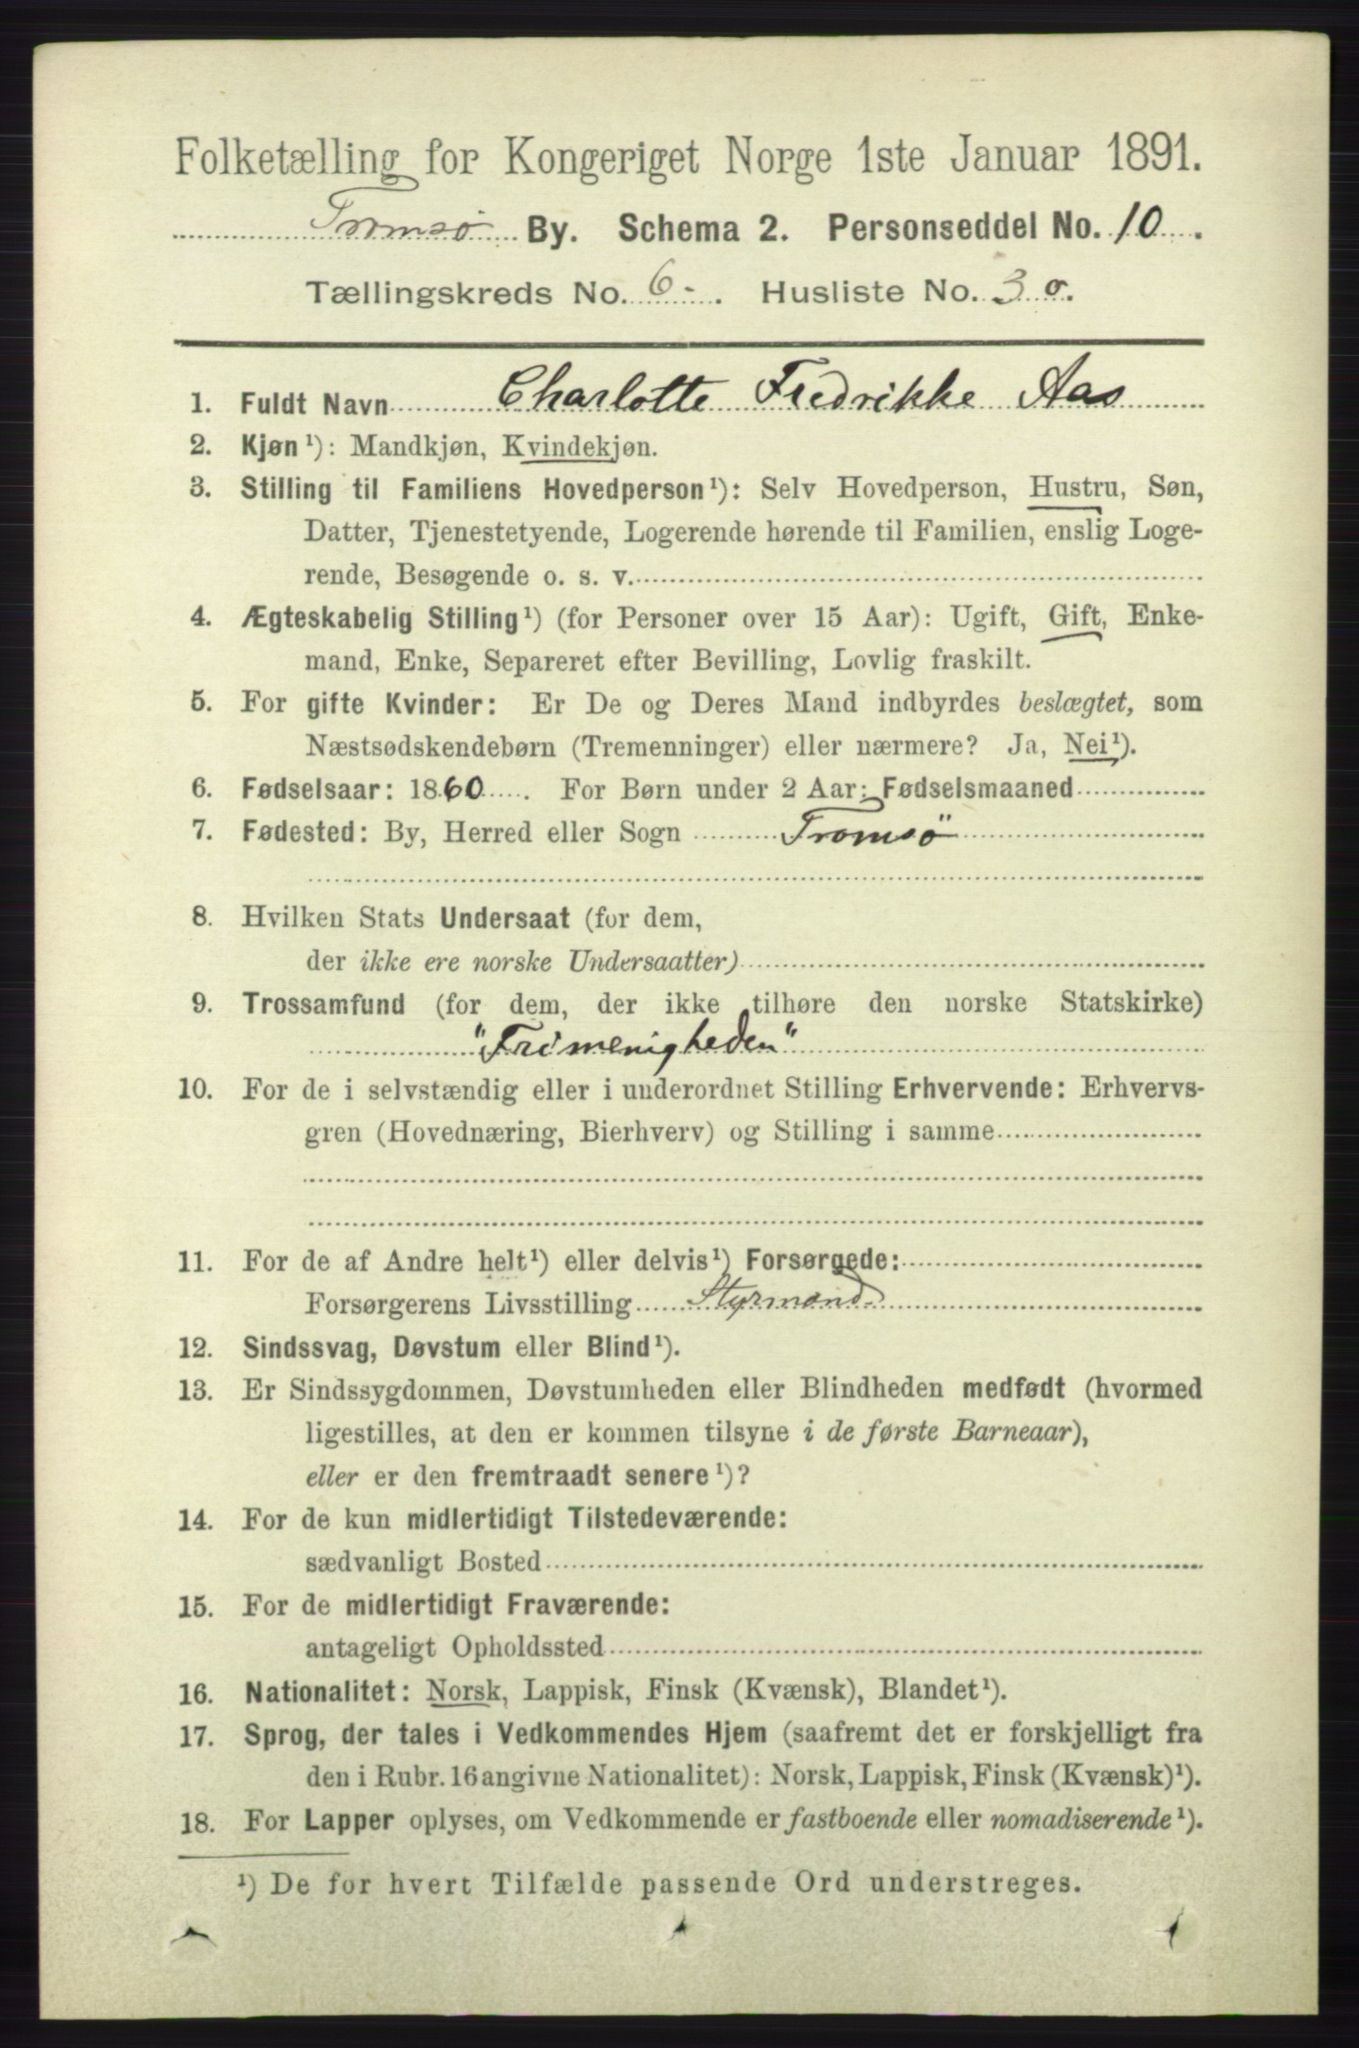 Folketælling for Kongeriget Norge 1ste Januar 1891.
Tromsø By. Schema 2. Personseddel No. 10.
Tællingskreds No. 6-. Husliste No. 30.
1. Fuldt Navn Charlotte Fredrikke Aas
2. Kjøn¹): Mandkjøn, Kvindekjøn.
3. Stilling til Familiens Hovedperson¹): Selv Hovedperson, Hustru, Søn,
Datter, Tjenestetyende, Logerende hørende til Familien, enslig Loge-
rende, Besøgende o. s. v.
4. Ægteskabelig Stilling¹) (for Personer over 15 Aar): Ugift, Gift, Enke-
mand, Enke, Separeret efter Bevilling, Lovlig fraskilt.
5. For gifte Kvinder: Er De og Deres Mand indbyrdes beslægtet, som
Næstsødskendebørn (Tremenninger) eller nærmere? Ja, Nei¹).
6. Fødselsaar: 1860. For Børn under 2 Aar: Fødselsmaaned
7. Fødested: By, Herred eller Sogn Tromsö
8. Hvilken Stats Undersaat (for dem,
der ikke ere norske Undersaatter)
9. Trossamfund (for dem, der ikke tilhøre den norske Statskirke)
"Frimenigheden"
10. For de i selvstændig eller i underordnet Stilling Erhvervende: Erhvervs-
gren (Hovednæring, Bierhverv) og Stilling i samme
11. For de af Andre helt¹) eller delvis¹) Forsørgede:
Forsørgerens Livsstilling Styrmand
12. Sindssvag, Døvstum eller Blind¹).
13. Er Sindssygdommen, Døvstumheden eller Blindheden medfødt (hvormed
ligestilles, at den er kommen tilsyne i de første Barneaar),
eller er den fremtraadt senere¹)?
14. For de kun midlertidigt Tilstedeværende:
sædvanligt Bosted
15. For de midlertidigt Fraværende:
antageligt Opholdssted
16. Nationalitet: Norsk, Lappisk, Finsk (Kvænsk), Blandet¹).
17. Sprog, der tales i Vedkommendes Hjem (saafremt det er forskjelligt fra
den i Rubr. 16 angivne Nationalitet): Norsk, Lappisk, Finsk (Kvænsk)¹).
18. For Lapper oplyses, om Vedkommende er fastboende eller nomadiserende¹).
¹) De for hvert Tilfælde passende Ord understreges.